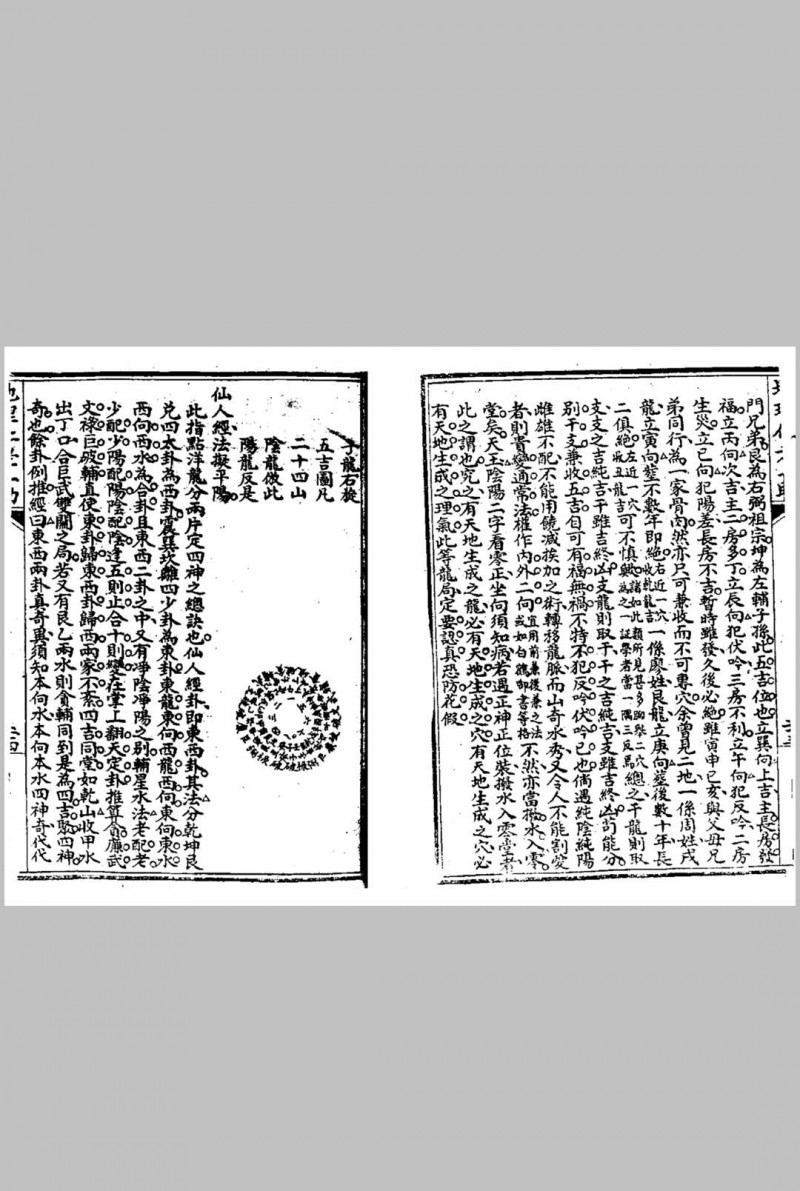 門兄弟艮為右弼祖宗坤為左輔子孫此五吉位也立巽向上吉主長房發
福立丙向次吉主二房多丁立辰向犯伏吟三房不利立午向犯反吟二房
生災立巳向犯陽差長房不吉暫時雖發久後必絕雖寅申巳亥與父母兄
弟同行為一家骨肉然亦只可兼收而不可專穴余曾見二地一係周姓戌
龍立寅向塟不數年即絕右近一穴一係廖姓艮龍立庚向塟後數十年長
二俱絕左近一穴可不慎與諸如此類所見甚多聊舉二穴為之一証學者當一隅三反焉總之干龍則取
支支之吉純吉干雖吉終凶支龍則取干干之吉純吉支雖吉終凶苟能分
別干支兼收五吉自可有福無禍不特不犯反吟伏吟已也倘遇純陰純陽
雌雄不配不能用饒減挨加之術轉移龍脈而山奇水秀又令人不能割愛
者則貴變通常法權作內外二向宜用前兼後兼之法或如白鶴御書等格不然亦當撥水入零
堂矣天玉陰陽二字看零正坐向須知病若遇正神正位裝撥水入零堂者
此之謂也究之有天地生成之龍必有天地生成之穴有天地生成之穴必
有天地生成之理氣此等龍局定要認真恐防花假
子龍右旋
五吉圖凡
二十四山
陰龍倣此
陽龍反是
仙人經法擬平陽
此指點洋龍分兩片定四神之總訣也仙人經卦即東西卦其法分乾坤艮
兌四太卦為西卦震巽坎離四少卦為東卦東龍東向西龍西向東向東水
西向西水為合卦且東西二卦之中又有淨陰淨陽之別輔星水法老配老
少配少陽配陽陰配陰逢五則止合十則變在掌上翻天定卦推算貪廉武
文祿巨破輔直使東卦歸東西卦歸西兩家不紊四吉同堂如乾山收甲水
出丁口合巨武雙關之局若又有艮乙兩水則貪輔同到是為四吉聚四神
奇也餘卦例推經曰東西兩卦真奇異須知本向水本向本水四神奇代代